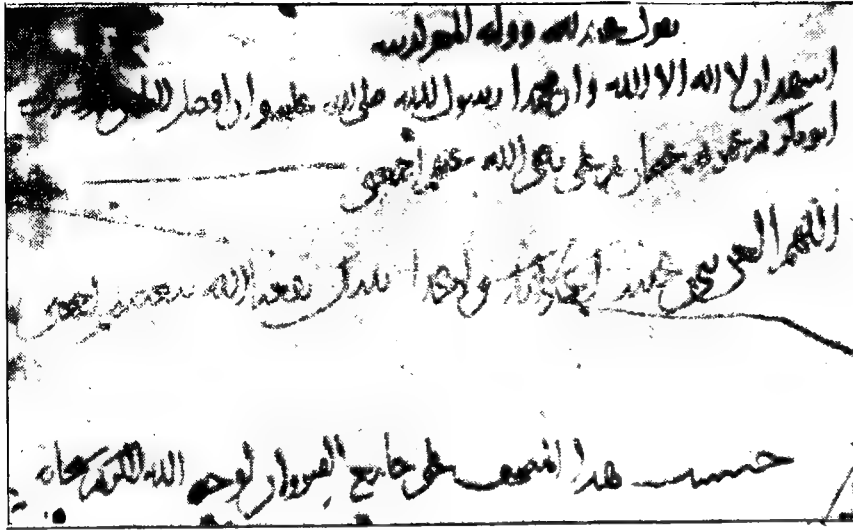 يقول عبد الله ووليه المعز لدينه
اشهد ان لا اله الا الله وان محمدا رسول الله صلى الله عليه وان افضل الناس بعد رسول
ابو بكر ثم عمر ثم عثمان ثم علي رضي الله عنهم اجمعين
اللهم العن بني عبيد اعدايك واعدا نبيك نفعنا الله ببغضهم اجمعين
حبست هذا المصحف على جامع القيروان لوجه الله الكريم سبحانه